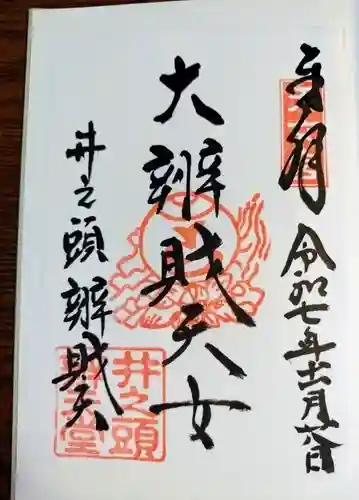 奉拝
令和七年十二月六日
大辨財天女
井之頭辨財天
井之頭
辨財天堂